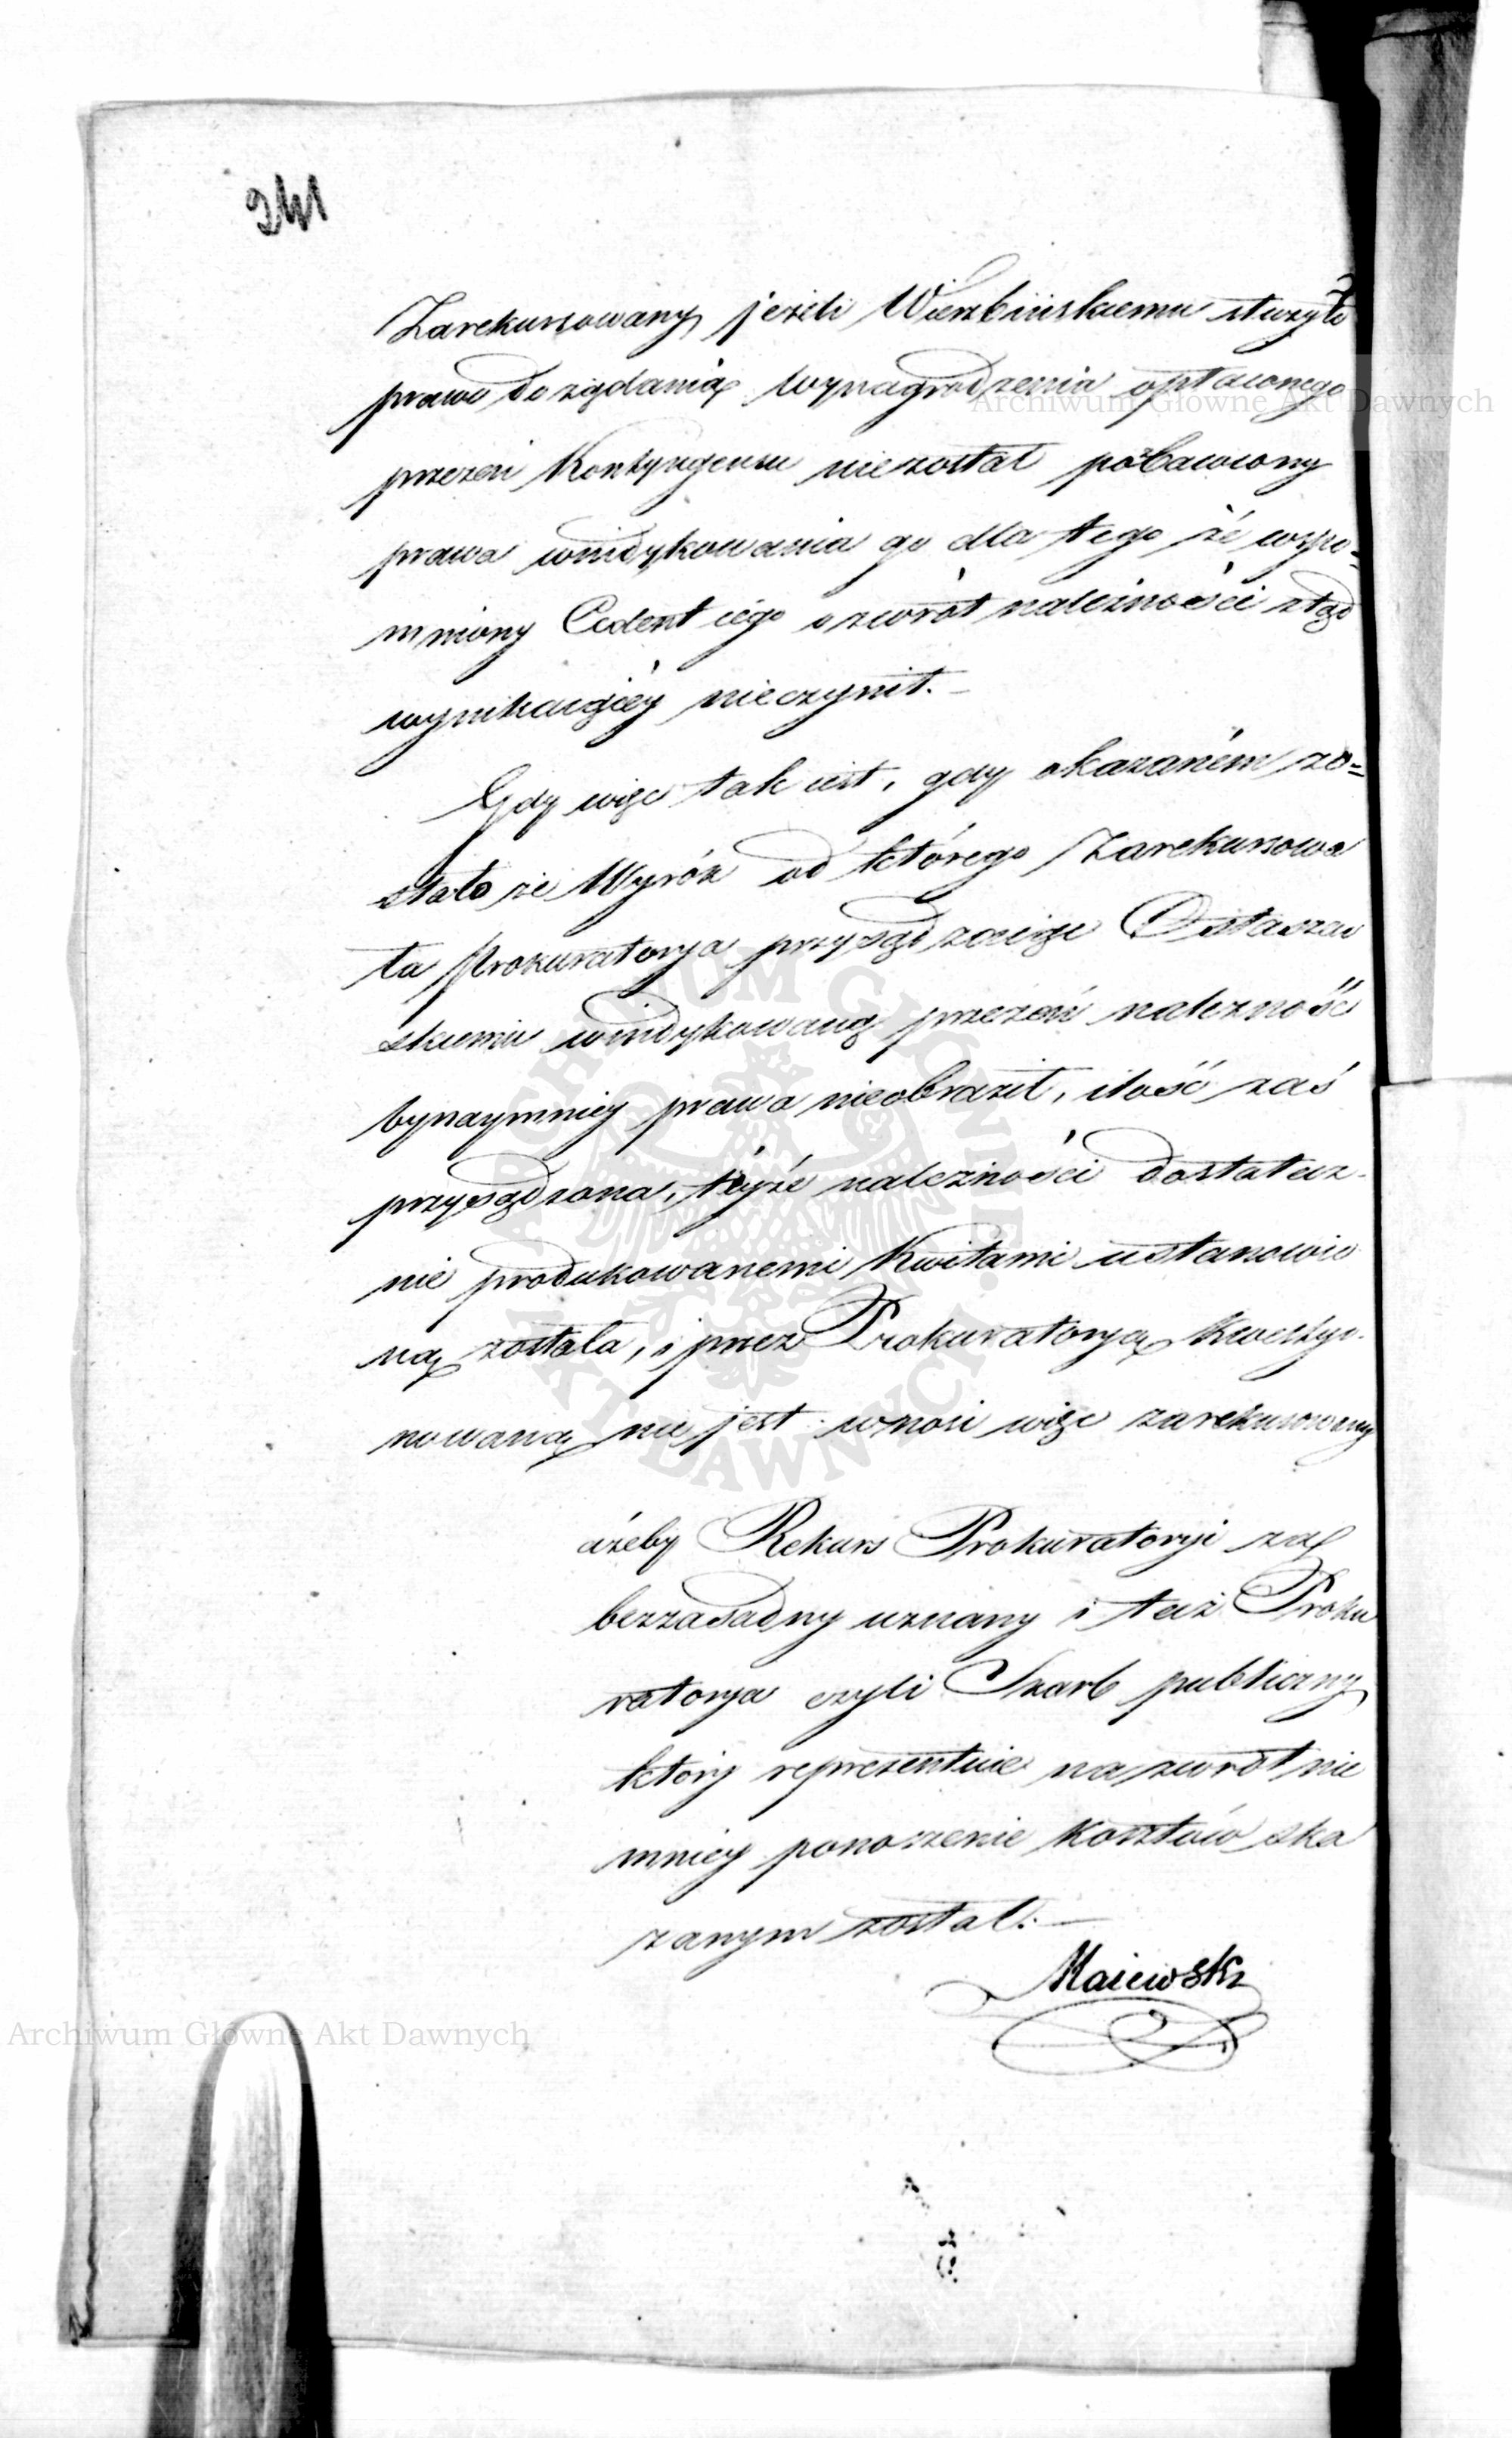 241
Zarekursowany jeżeli Wierzbińskiemu służyło
prawo do żądania wynagrodzenia opłaconego
przezeń Kontyngensu niezostał pozbawiony
prawa windykowania go dla tego że wspo=
mniony Cedent iego o zwrót należności ztąd
wynikaiącéy nieczynił. –
Gdy więc tak iest, gdy okazaném zo=
stało że Wyrók od którego Zarekursowa
ła Prokuratorya przysądzaiąc Ostaszew
skiemu windykowaną przezeń należność
bynaymniey prawa nieobraził, ilość zaś
przysądzona, téyże należności dostatecz-
nie produkowanemi Kwitami ustanowio
ną została, i przez Prokuratoryą Kwestyo-
nowaną nie jest wnosi więc zarekursowany
ażeby Rekurs Prokuratoryi za
bezzasadny uznany i taż Proku
ratorya czyli Skarb publiczny
który reprezentuie na zwrót nie
mniey ponoszenie kosztów ska
zanym został. –
Maiewski
Archiwum Główne Akt Dawnych
ARCHIWUM GŁÓWNE AKT DAWNYCH
Archiwum Główne Akt Dawnych